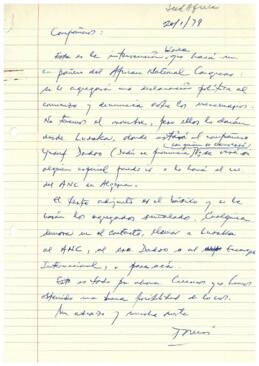 Sud Africa
20/1/79
Compañeros:
Esta es la intervención básica, que hará un
compañero del African National Congress:
se le agregará una declaración política al
comienzo y denuncia sobre los mercenarios.
No tenemos el nombre, pero ellos lo darían
desde Lusaka, donde está el compañero
Yusuf Dadoo (Dadú se pronuncia)
algún español puede ir o lo hará el
del ANC en Algeria.
El texto adjunto es el básico y se le
harán los agregados señalados. Cualquier
demora en el contacto, llamar a Lusaka
al ANC, al Dadoo o al
Internacional, o para acá.
Esto es todo por ahora. Creemos que hemos
obtenido una buena posibilidad de voces.
Un abrazo y mucha suerte